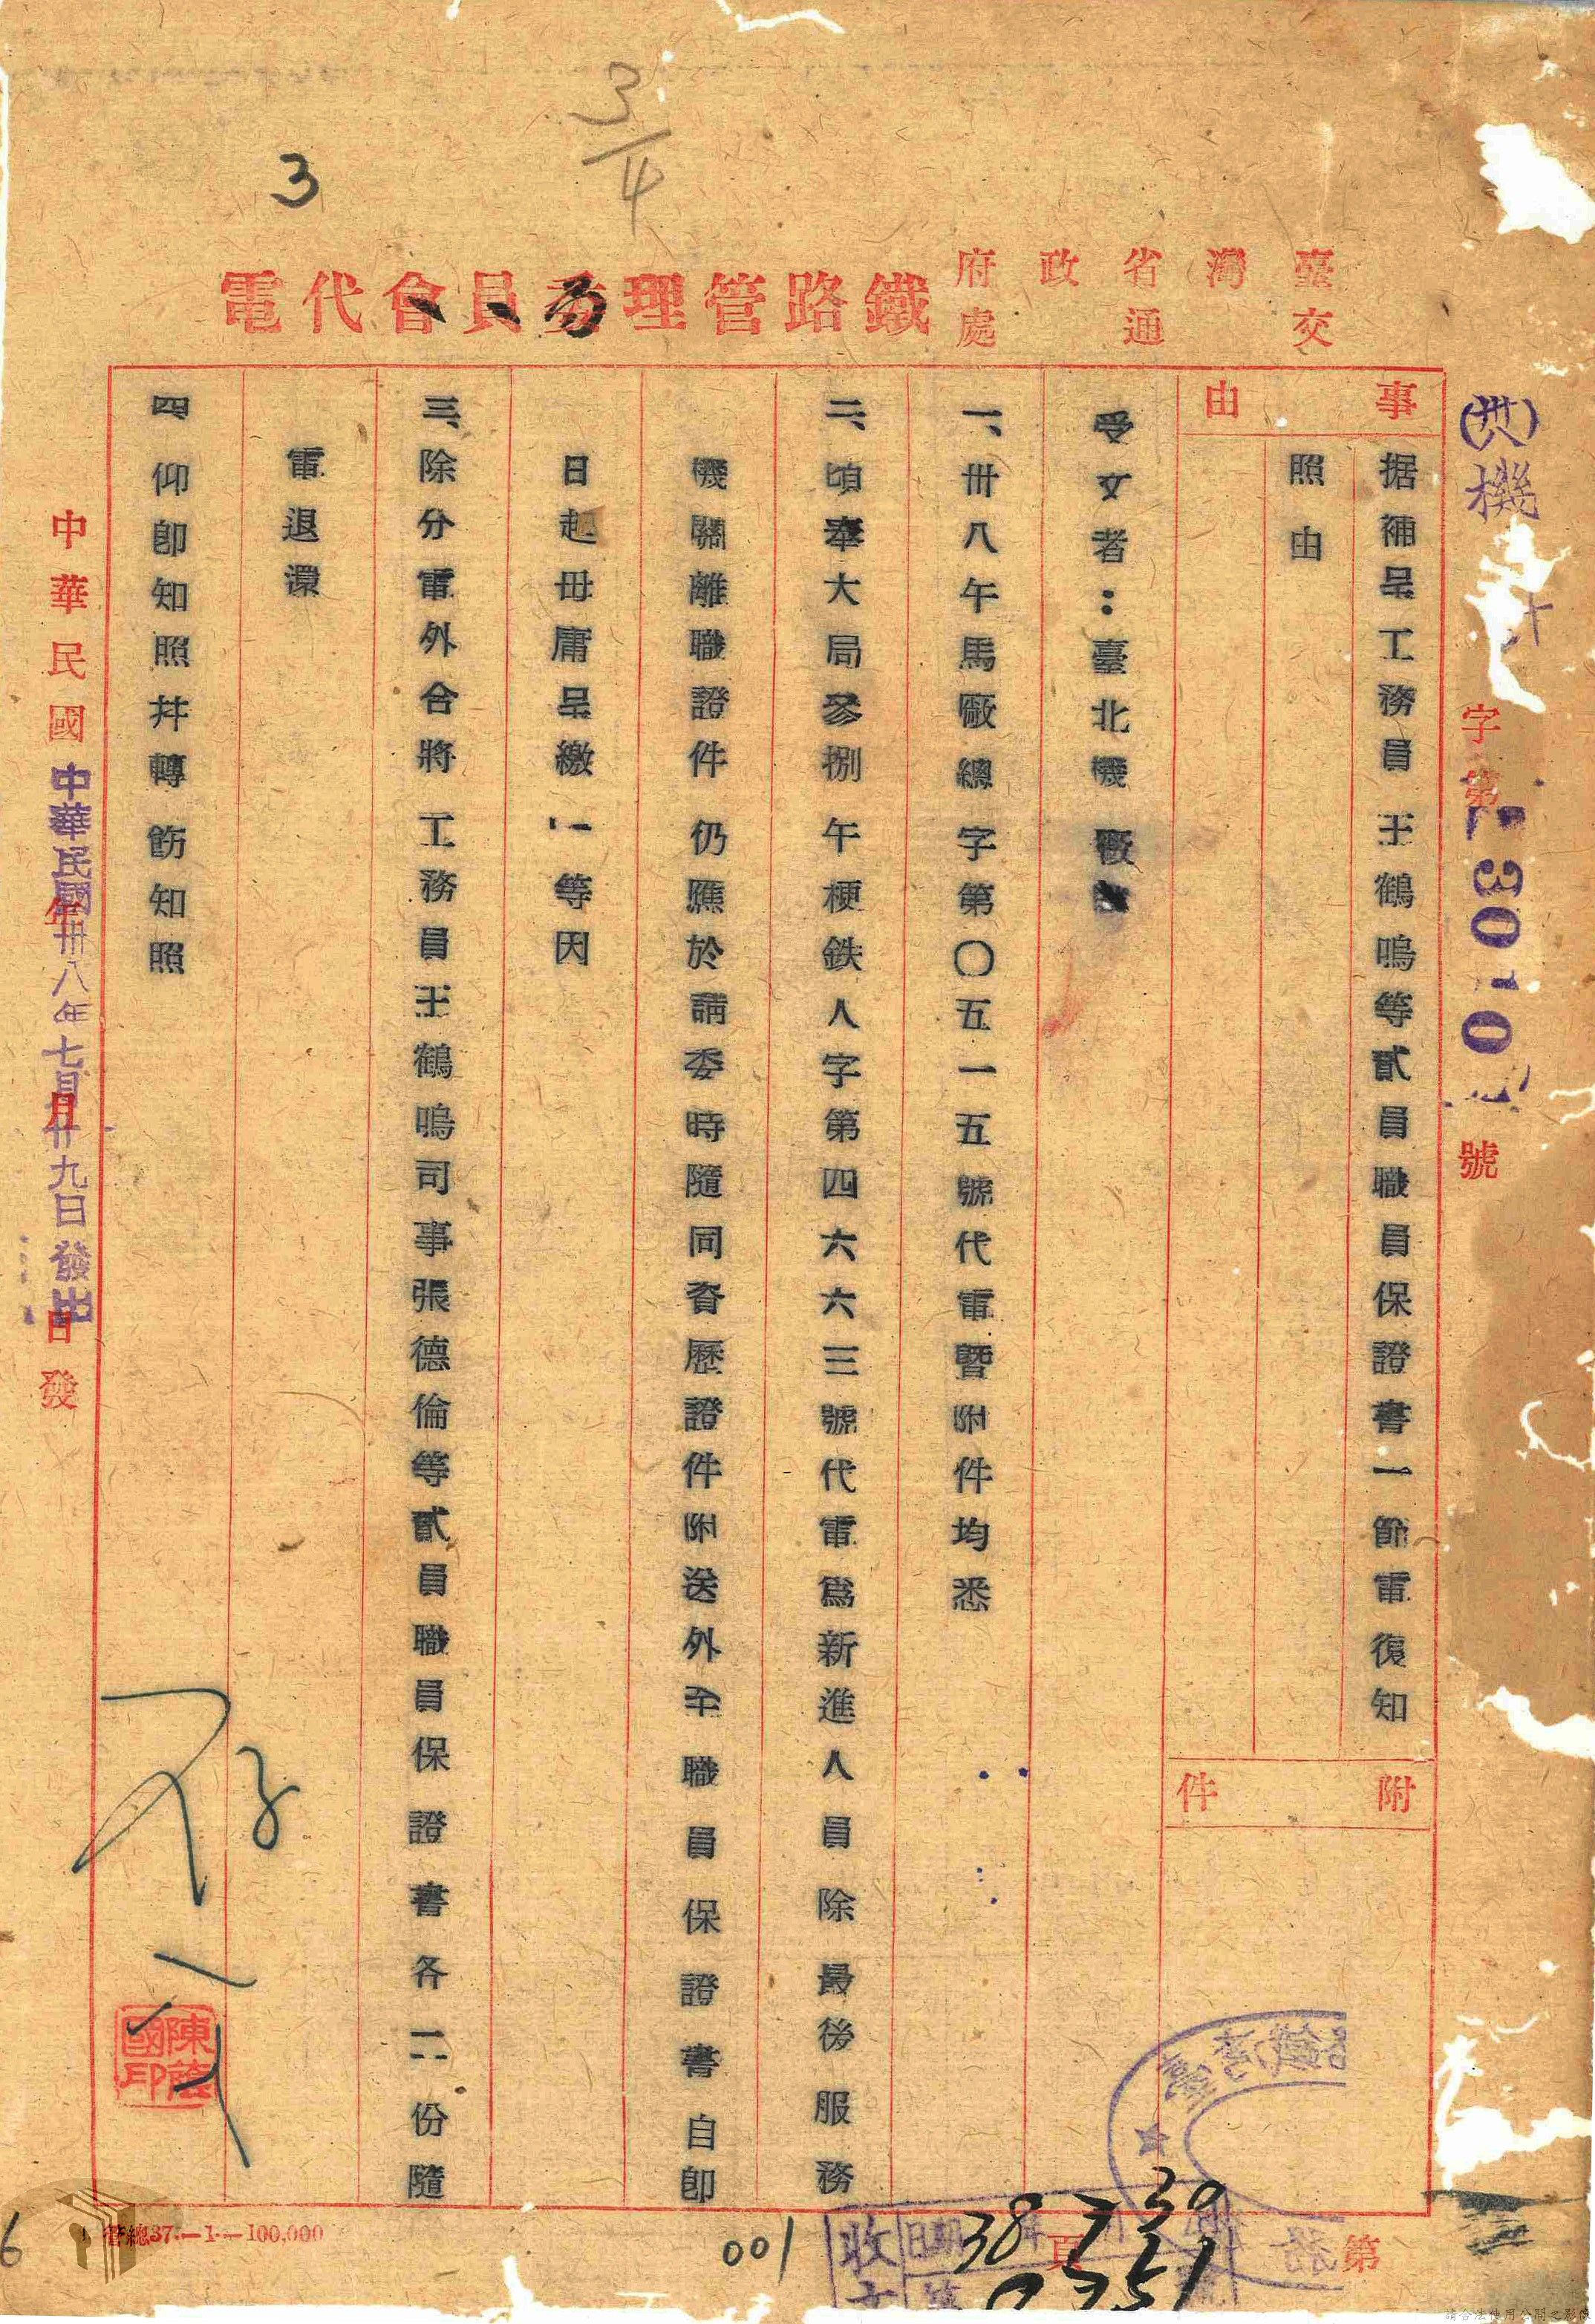 3/4
3
臺灣省政府
交通處
鐵路管理委員會代電
(卅八)機
字第
3010
號
事由
据補呈工務員王鶴鳴等貳員職員保證書一節電復知
照由
附件
受文者：臺北機廠
一、卅八午馬廠總字第〇五一五號代電暨附件均悉
二、頃奉大局參捌午梗鉄人字第四六六三號代電爲新進人員除最後服務
機關離職證件仍應於請委時隨同資歷證件附送外至職員保證書自卽
日起毋庸呈繳「一等因
三、除分電外合將工務員王鶴鳴司事張德倫等貳員職員保證書各二份隨
電退還
四仰卽知照并轉飭知照
中華民國年月日發
中華民國卅八年七月廿九日發出
存
第頁
收文
日期
38 7 30
0751
001
管總37.—1.—100,000
6